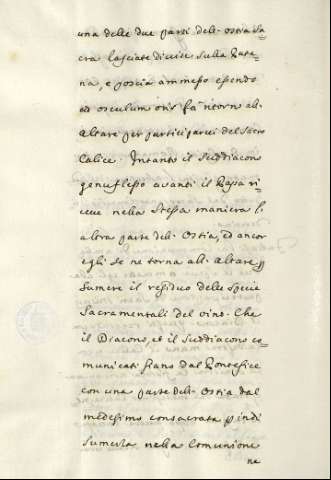 una delle due parti dell'ostia sa
cra lasciate divise sulla Pate
na, e poscia ammesso essendo
ad osculum oris fa ritorno all'
Altare per participarvi del Sacro
Calice. Intanto il Suddiacono
genuflesso avanti il Papa ri
ceve nella Stessa maniera l'
altra parte dell'Ostia, ed ancor
egli se ne torna all'Altare p
sumere il residuo delle Specie
Sacramentali del vino. Che
il Diacono, et il Suddiacono co
municati siano dal Pontefice
con una parte dell'Ostia dal
medesimo consacrata p indi
sumersla nella Comunione
ne